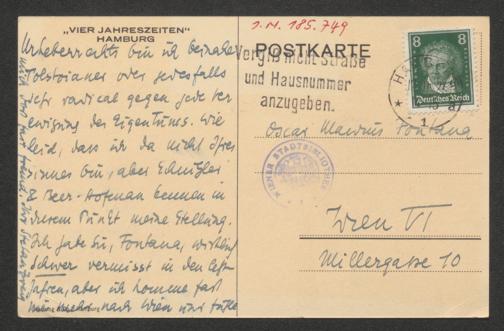 „VIER JAHRESZEITEN"
HAMBURG
J.N. 185.749
POSTKARTE
Vergiß nicht Straße
und Hausnummer
anzugeben.
8 8
Deutsches Reich
HA
1
WIENER STADTBIBLIOTHEK
Urheberrechts bin ich beinahe
Tolstoianer oder jedesfalls
sehr radical gegen jede Ver
ewigung des Eigentums. Wie
leid, dass ich da nicht
immer bin, aber Schnitzler
& Beer-Hofman kennen in
diesem Punkt meine Stellung.
Ich habe Sie, Fontana, wirklich
schwer vermisst in den
Jahren, aber ich komme fast
nicht mehr nach Wien und
Oscar Maurus Fontana
Wien VI
Millergasse 10